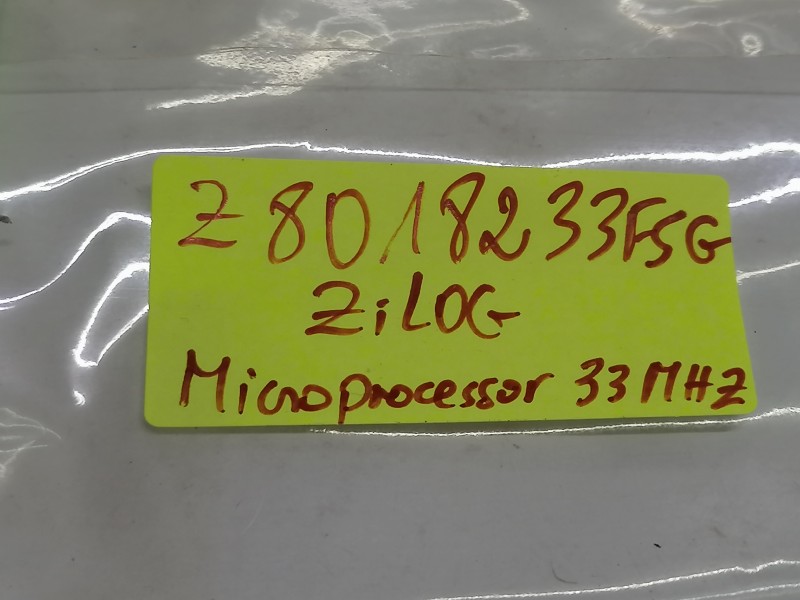 Z8018233FSG
ZiLOG
Microprocessor 33MHZ